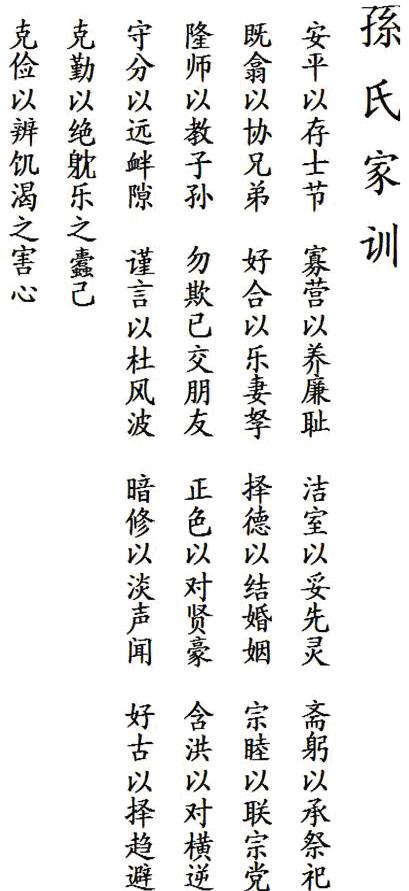 孫氏家训
安平以存士节 寡营以养廉耻 洁室以妥先灵 斋躬以承祭祀
既翕以协兄弟 好合以乐妻孥 择德以结婚姻 宗睦以联宗党
隆师以教子孙 勿欺已交朋友 正色以对贤豪 含洪以对横逆
守分以远衅隙 谨言以杜风波 暗修以淡声闻 好古以择趋避
克勤以绝躭乐之蠹己
克俭以辨饥渴之害心